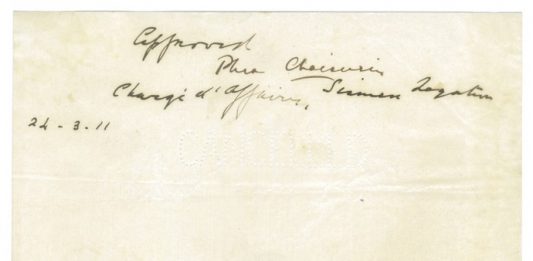 Approved
Phra Chaisurin
Chargé d'affaires, Siamese Legation
24 - 3. 11